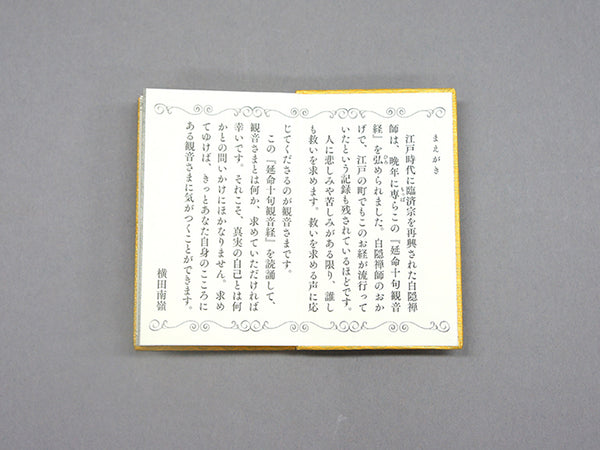 まえがき
江戸時代に臨済宗を再興された白隠禅
師は、晩年に専らこの『延命十句観音
経』を弘められました。白隠禅師のおか
げで、江戸の町でもこのお経が流行って
いたという記録も残されているほどです。
人に悲しみや苦しみがある限り、誰し
も救いを求めます。救いを求める声に応
じてくださるのが観音さまです。
この『延命十句観音経』を読誦して、
観音さまとは何か、求めていただければ
幸いです。それこそ、真実の自己とは何
かとの問いかけにほかなりません。求め
てゆけば、きっとあなた自身のこころに
ある観音さまに気がつくことができます。
横田南嶺